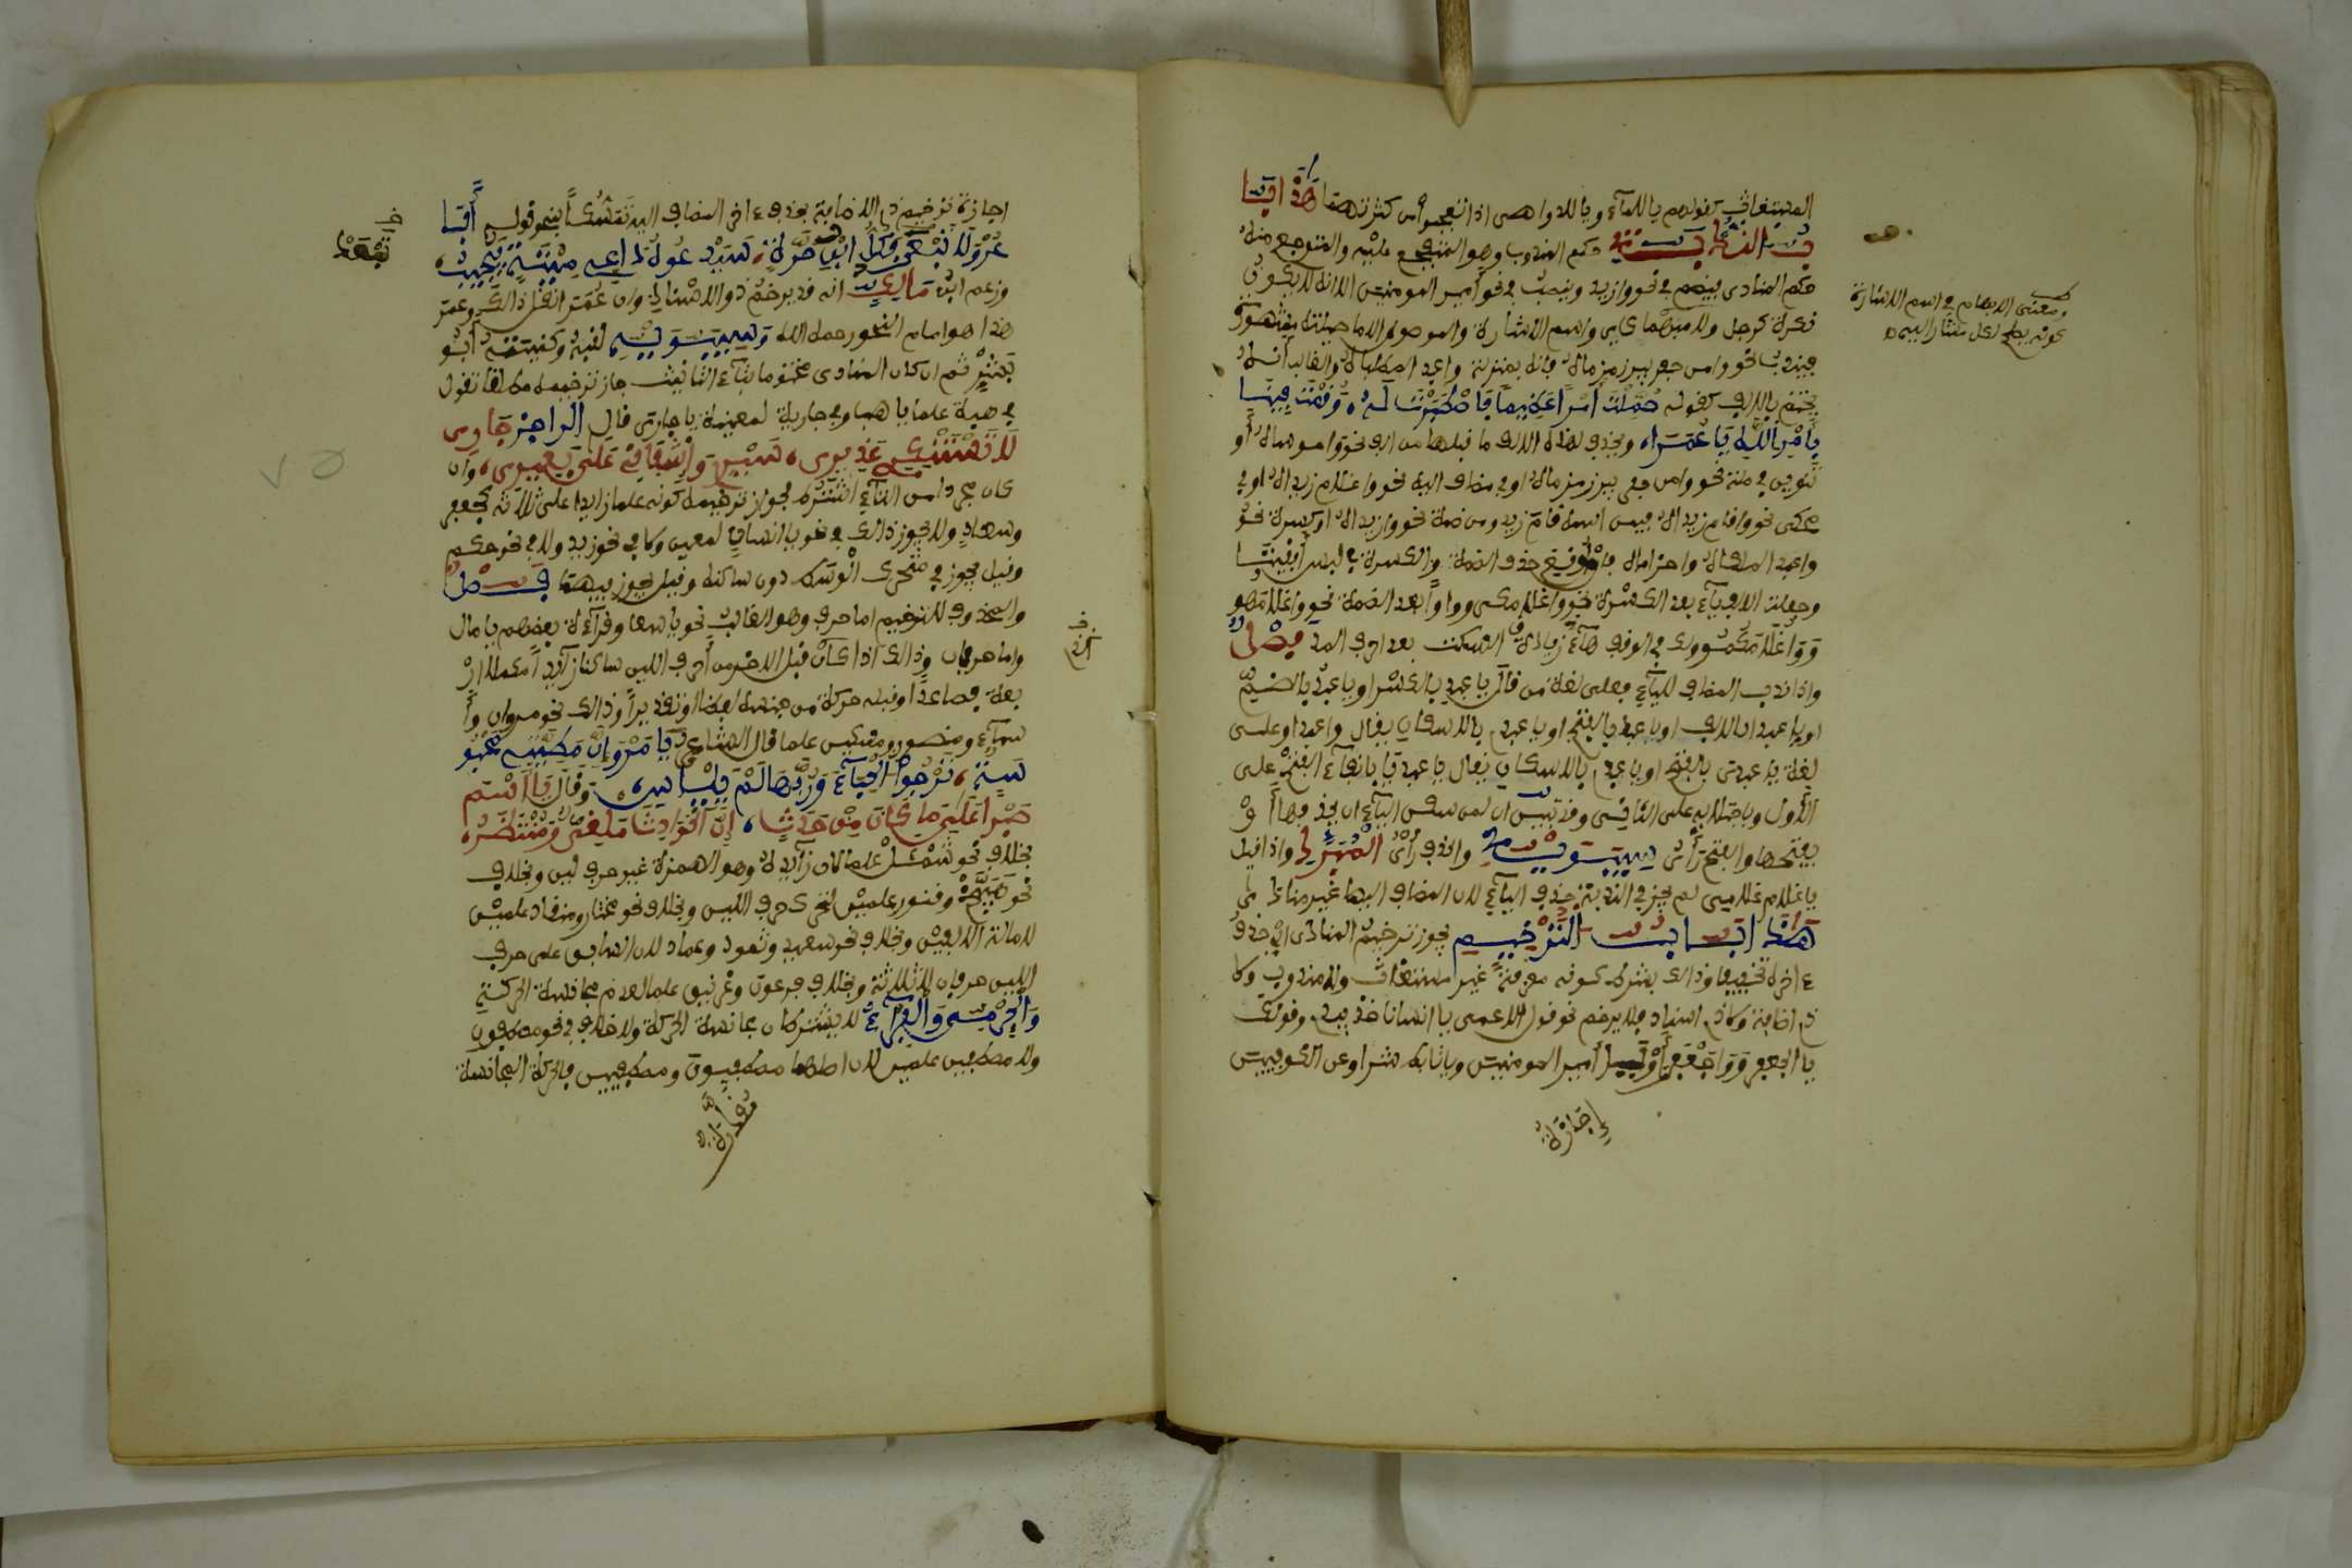 المستغاث كقولهم يا للمآء ويا للدواهى اذا تعجبوا من كثرتهما هٰذا بَا
ب النُّدْبَة حكم المندوب وهو المتفجع عليه والمتوجع منه
حكم المنادى فيضم في نحو وا زيد وينصب في نحو وا أمير المومنين الا انه لا يكون
نكرة كرجل ولا مبهما كأي واسم الاشارة والموصول الا ما صلته مشهورة
فيندب نحو وا من حفر بير زمزماه فانه بمنزلة وا عبد المطلباه والغالب أنه
يختم بالالف كقوله حُمِّلْتَ أَمْرًا عَظِيمًا فَاصْطَبَرْتَ لَهُ، وَقُمْتَ فِيهِ
بِأَمْرِ اللَّهِ يَا عُمَرَا، ويحذف لهذه الالف ما قبلها من الف نحو وا موساه أو
تنوين في صلة نحو وا من حفر بير زمزماه او في مضاف اليه نحو وا غلام زيداه او في
محكى نحو وا قام زيداه فيمن اسمه قام زيد ومن ضمة نحو وا زيداه او كسرة نحو
وا عبد الملكاه وا حذاماه فإن أوقع حذف الضمة والكسرة في لبس أبقيتا
وجعلت الالف يآء بعد الكسرة نحو وا غلامكى وواواً بعد الضمة نحو وا غلامهو
وَوَا غُلَامَكُمُو ولك في الوقف هآء زيادة السكت بعد احرف المد فصل
واذا ندب المضاف للياء فعلى لغة من قال يا عبدِ بالكسر او يا عبدُ بالضم
او يا عبدا بالالف او يا عبدَ بالفتح او يا عبدى بالاسكان يقال وا عبدا وعلى
لغة يا عبدىَ بالفتح او يا عبدى بالاسكان يقال يا عبديا بابقآء الفتح على
الأول وباجتلابه على الثاني وقد تبين ان لمن سكن اليآء ان يحذفها أو
يفتحها والفتح رأى سِيبَوَيْهِ والحذف رأى الْمُبَرِّدِ واذا قيل
يا غلام غلامى لم يجز في الندبة حذف اليآء لان المضاف اليها غير منادا
هٰذا بَاب التَّرْخِيمِ يجوز ترخيم المنادى اي حذف
ءاخره تخفيفا وذالك بشرط كونه معرفة غير مستغاث ولا مندوب ولا
ذي اضافة ولا ذي اسناد فلا يرخم نحو قول الاعمى يا انسانا خذ بيدى وقولك
يا لجعفر وَوَا جَعْفَرَاهُ أمير المومنين ويا تابط شرا وعن الكوفيين
إِجَازَةُ
ومعنى الابهام في اسم الاشارة
كونه يصلح لكل مشار اليه
اجازة ترخيم ذي الاضافة بحذف ءاخر المضاف اليه تمسكاً بنحو قوله أَبَا
عُرْوَ لَا تَبْعَدْ فَكُلُّ ابْنِ حُرَّةٍ، سَيَدْعُوهُ دَاعِي مِيتَةٍ فَيُجِيبُ،
وزعم ابن مَالِك انه قد يرخم ذو الاسناد وان عمرا نقل ذالك وعمرو
هذا هو امام النحو رحمه الله وَسِيبَوَيْهِ لقبه وكنيته أبو
بِشْرٍ ثم ان كان المنادى مختوما بتآء التانيث جاز ترخيمه مطلقا تقول
في هبة علما يا هبَ وفي جارية لمعينة يا جارىَ قال الراجز جَارِي
لَا تَسْتَنْكِرِي عَذِيرِى، سَيْرِي وَإِشْفَاقِي عَلَى بَعِيرِى، وان
كان مجردا من التآء اشترط لجواز ترخيمه كونه علما زايدا على ثلاثة كجعفر
وسعاد ولا يجوز ذالك في نحو يا انسان لمعين ولا في نحو زيد ولا في نحو حكم
وقيل يجوز في محرك الوسط دون ساكنه وقيل يجوز فيهما فَصْلٌ
والمحذوف للترخيم اما حرف وهو الغالب نحو يا سعا وقرآءة بعضهم يا مال
واما حرفان وذالك اذا كان قبل الاخر من أحرف اللين ساكنا زآيدا مكملا أر
بعة فصاعدا وقبله حركة من جنسه لفظا او تقديرا وذالك نحو مروان وأ
سمآء ومنصور ومسكين علما قال الشاعر يَا مَرْوَ إِنَّ مَطِيَّتِي مَحْبُو
سَةٌ، تَرْجُوا الْحِبَآءَ وَرَبُّهَا لَمْ يَيْأَسِ، وَقَالَ يَا أَسْمَ
صَبْرًا عَلَى مَا كَانَ مِنْ حَدَثٍ، إِنَّ الْحَوَادِثَ مَلْقِيٌّ وَمُنْتَظَرُ،
بخلاف نحو شمأل علما لان زآيده وهو الهمزة غير حرف لين وبخلاف
نحو هَبَيَّخ وقنور علمين لتحرك حرف اللين وبخلاف نحو مختار ومنقاد علمين
لاصالة الالفين وبخلاف نحو سعيد وثمود وعماد لان السابق على حرف
اللين حرفان لا ثلاثة وبخلاف فرعون وغرنيق علما لعدم مجانسة الحركة
وَالْجَرْمِي وَالْفَرَّآءُ لا يشترطان مجانسة الحركة ولا خلاف في نحو مصطفون
ولا مصطفين علمين لان اصلهما مصطفيون ومصطفيين فالحركة المجانسة
مُقَدَّرَةٌ
٧٥